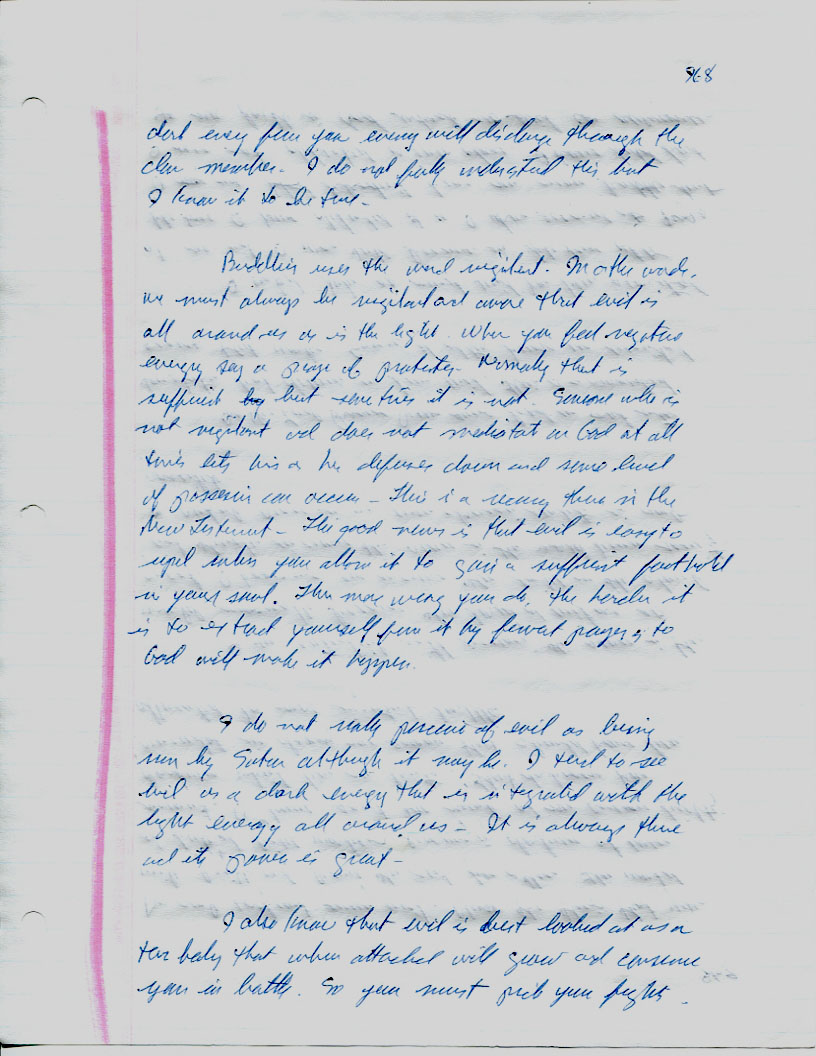 968
dark energy from your enemy will discharge through the
clan member - I do not fully understand this but
I know it to be true -
Buddhis uses the word vigilant. In other words,
we must always be vigilant and aware that evil is
all around us as is the light. When you feel negative
energy say a prayer of protection - Normally that is
sufficient but sometimes it is not. Someone who is
not vigilant and does not meditate on God at all
times lets his or her defenses down and some level
of possession can occur - This is a recurring theme in the
New Testament - The good news is that evil is easy to
repel unless you allow it to gain a sufficient foothold
in your soul. The more wrong you do, the harder it
is to extract yourself from it by fervent prayers to
God will make it happen.
I do not really perceive of evil as being
run by Satan although it may be. I tend to see
evil as a dark energy that is integrated with the
light energy all around us - It is always there
and its power is great -
I also know that evil is best looked at as a
tar baby that when attacked will grow and consume
you in battle. So you must pick your fights.